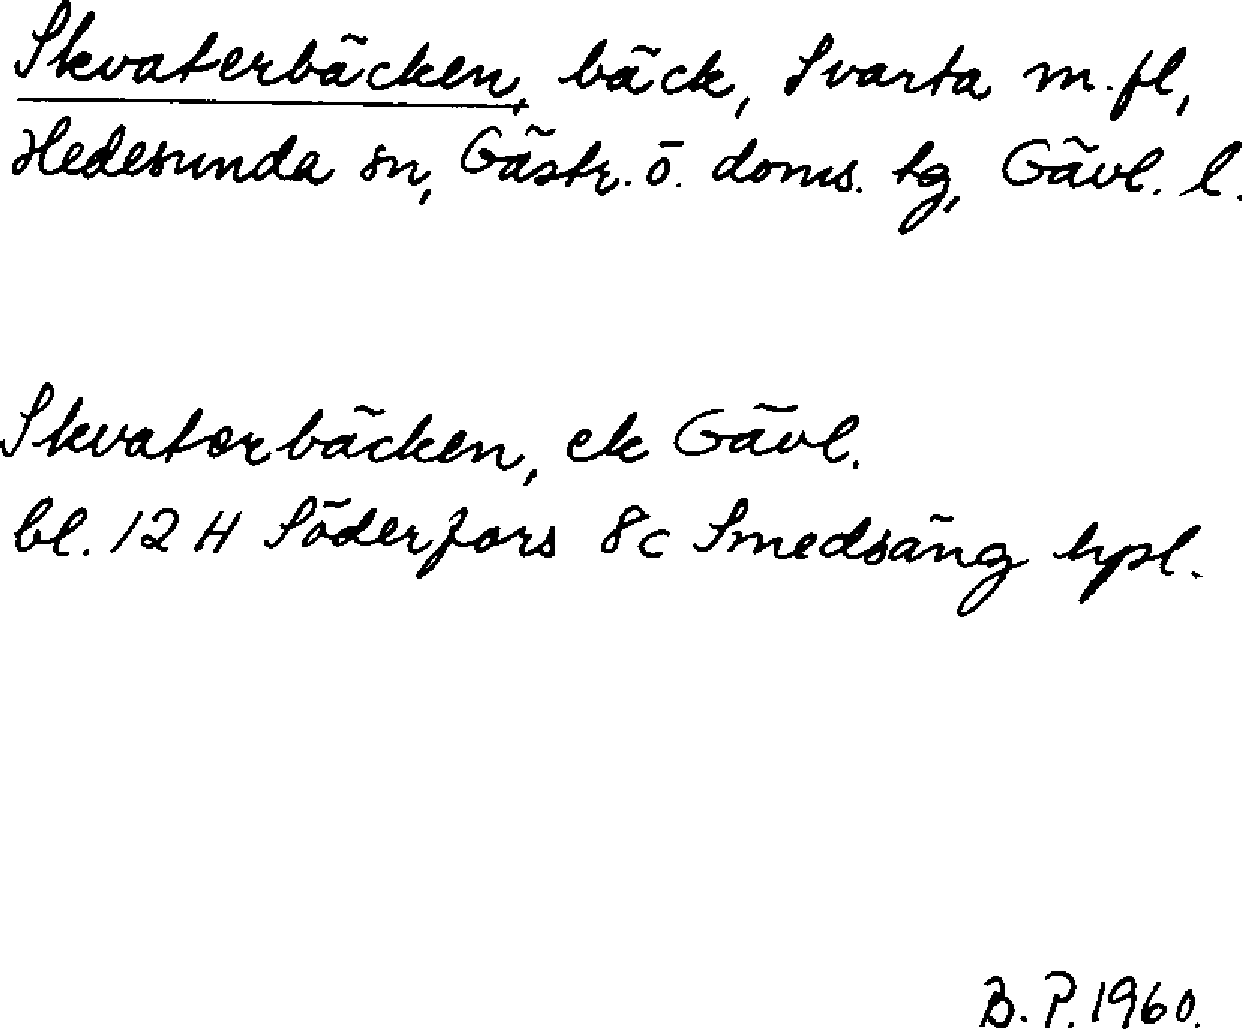 Skvaterbäcken, bäck, Svarta m.fl,
Hedesunda sn, Gästr. ö. doms. tg, Gävl. l.
Skvatorbäcken, ek Gävl.
bl. 12 H Söderfors 8c Smedsäng hpl.
B. P. 1960.